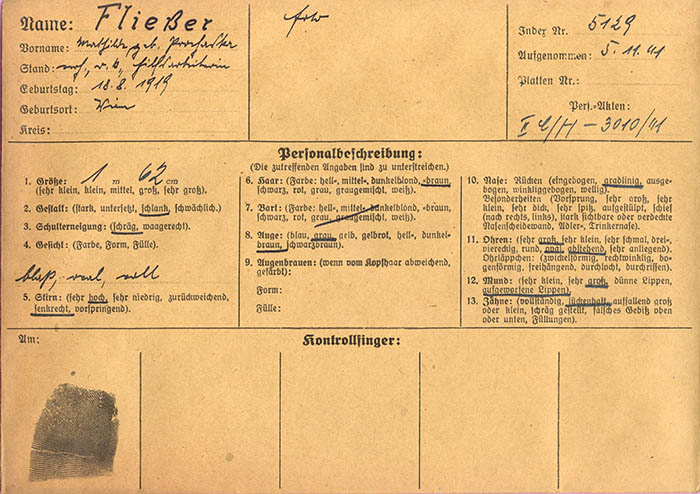 Name: Fließer
Vorname: Mathilde, geb. Prochaska
Stand: verh., r. k., Hilfsarbeiterin
Geburtstag: 18.8.1919
Geburtsort: Wien
Kreis:
Index Nr. 5129
Aufgenommen: 5.11.41
Platten Nr.:
Pers.-Akten:
3010/41
Personalbeschreibung:
(Die zutreffenden Angaben sind zu unterstreichen.)
1. Größe: 1 m 62 cm
(sehr klein, klein, mittel, groß, sehr groß).
2. Gestalt: (stark, untersetzt, schlank, schwächlich).
3. Schulterneigung: (schräg, waagerecht).
4. Gesicht: (Farbe, Form, Fülle).
blaß, oval, voll
5. Stirn: (sehr hoch, sehr niedrig, zurückweichend,
senkrecht, vorspringend).
6. Haar: (Farbe: hell-, mittel-, dunkelblond, -braun,
schwarz, rot, grau, graugemischt, weiß).
7. Bart: (Farbe: hell-, mittel- dunkelblond, -braun,
schwarz, rot, grau, graugemischt, weiß).
8. Auge: (blau, grau, gelb, gelbrot, hell-, dunkel-
braun, schwarzbraun).
9. Augenbrauen: (wenn vom Kopfhaar abweichend,
gefärbt):
Form:
Fülle:
10. Nase: Rücken (eingebogen, gradlinig, ausge-
bogen, winkliggebogen, wellig).
Besonderheiten (Vorsprung, sehr groß, sehr
klein, sehr dick, sehr spitz, aufgestülpt, schief
(nach rechts, links), stark sichtbare oder verdeckte
Nasenscheidewand, Adler-, Trinkernase).
11. Ohren: (sehr groß, sehr klein, sehr schmal, drei-,
viereckig, rund, oval, abstehend, sehr anliegend).
Ohrläppchen: (zwickelförmig, rechtwinklig, bo-
genförmig, freihängend, durchlocht, durchrissen).
12. Mund: (sehr klein, sehr groß, dünne Lippen,
aufgeworfene Lippen).
13. Zähne: (vollständig, lückenhaft, auffallend groß
oder klein, schräg gestellt, falsches Gebiß oben
oder unten, Füllungen).
Am:
Kontrollfinger: